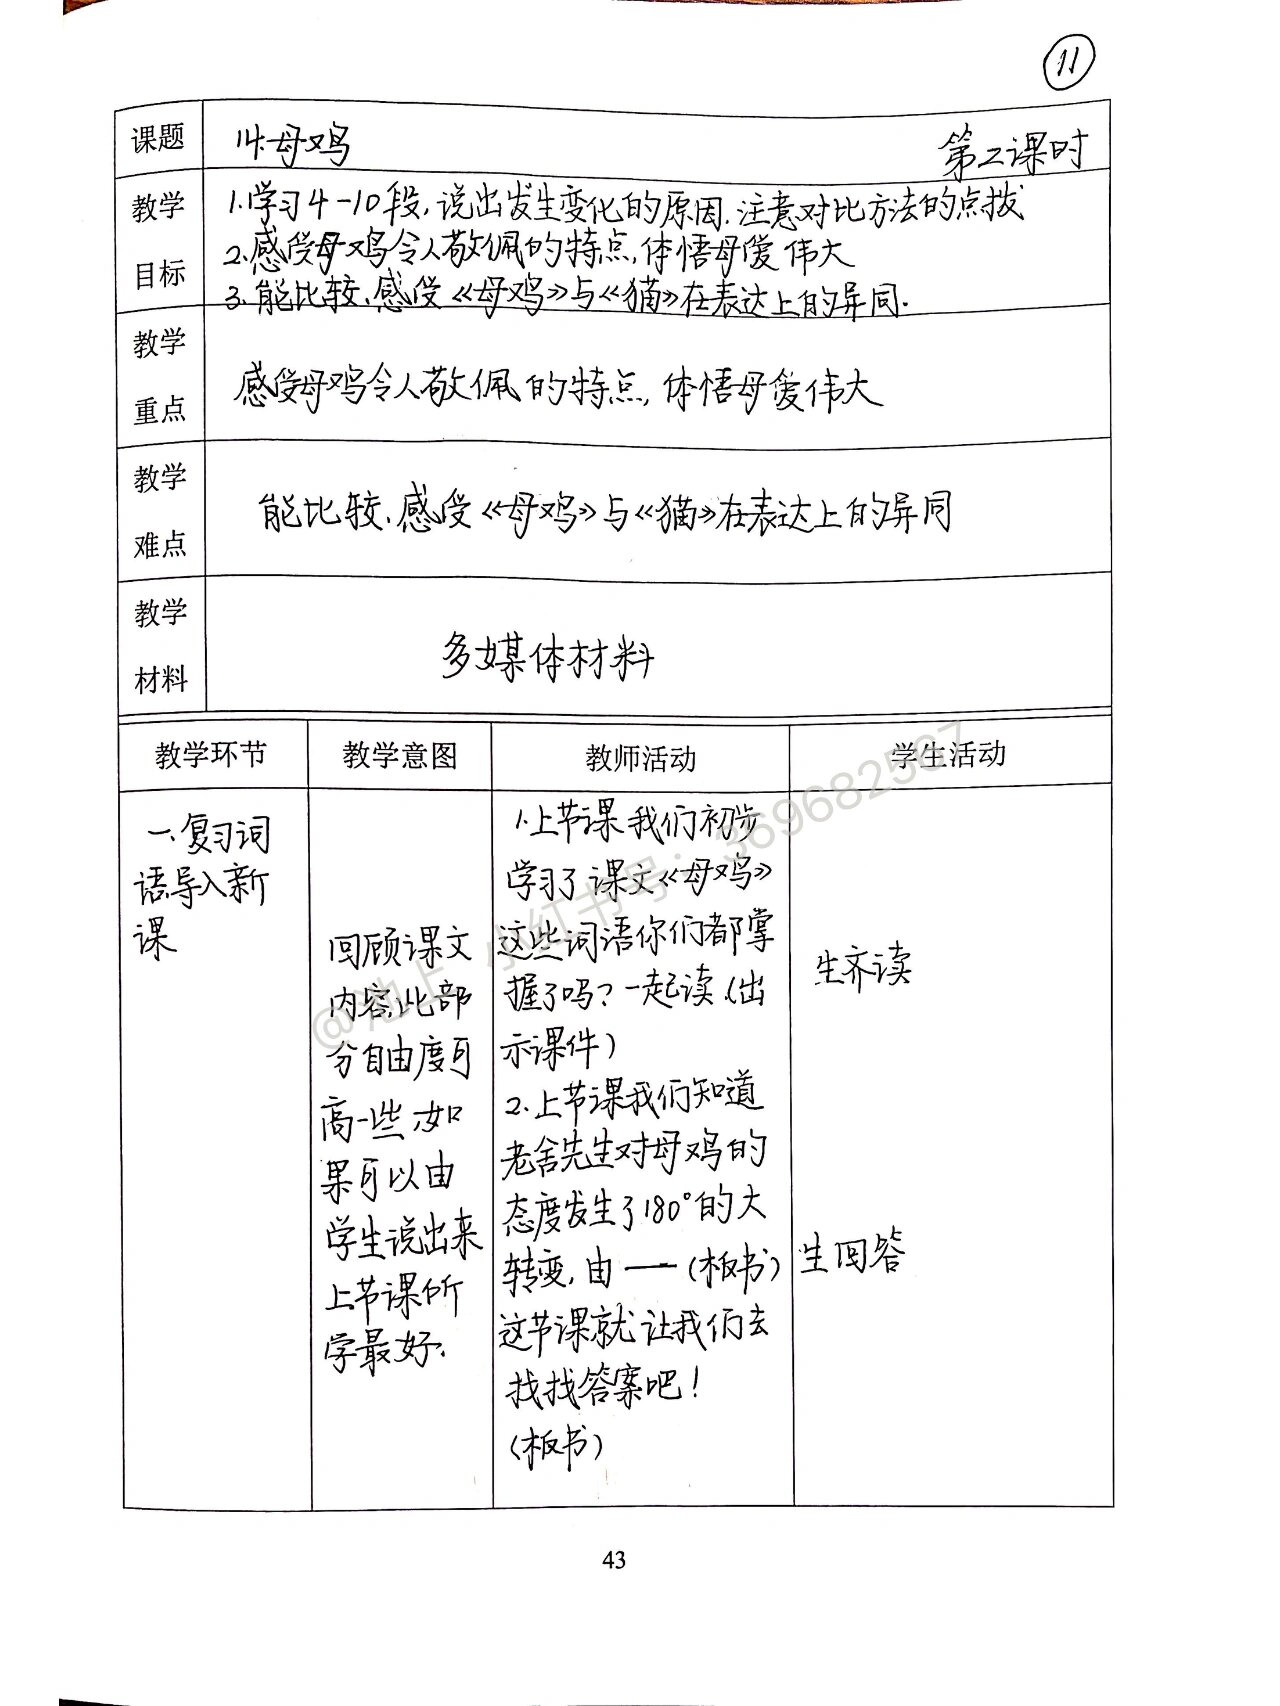 11
课题 14.母鸡 第二课时
教学目标
1.学习4-10段,说出发生变化的原因.注意对比方法的点拨
2.感受母鸡令人敬佩的特点,体悟母爱伟大
3.能比较、感受《母鸡》与《猫》在表达上的异同.
教学重点
感受母鸡令人敬佩的特点,体悟母爱伟大
教学难点
能比较、感受《母鸡》与《猫》在表达上的异同
教学材料
多媒体材料
教学环节 教学意图 教师活动 学生活动
一、复习词
语导入新
课
回顾课文
内容,此部
分自由度可
高一些,如
果可以由
学生说出来
上节课所
学最好.
1.上节课我们初步
学习了课文《母鸡》
这些词语你们都掌
握了吗?一起读.(出
示课件)
2.上节课我们知道
老舍先生对母鸡的
态度发生了180°的大
转变,由——(板书)
这节课就让我们去
找找答案吧!
(板书)
生齐读
生回答
@池上 小红书号:369682587
43